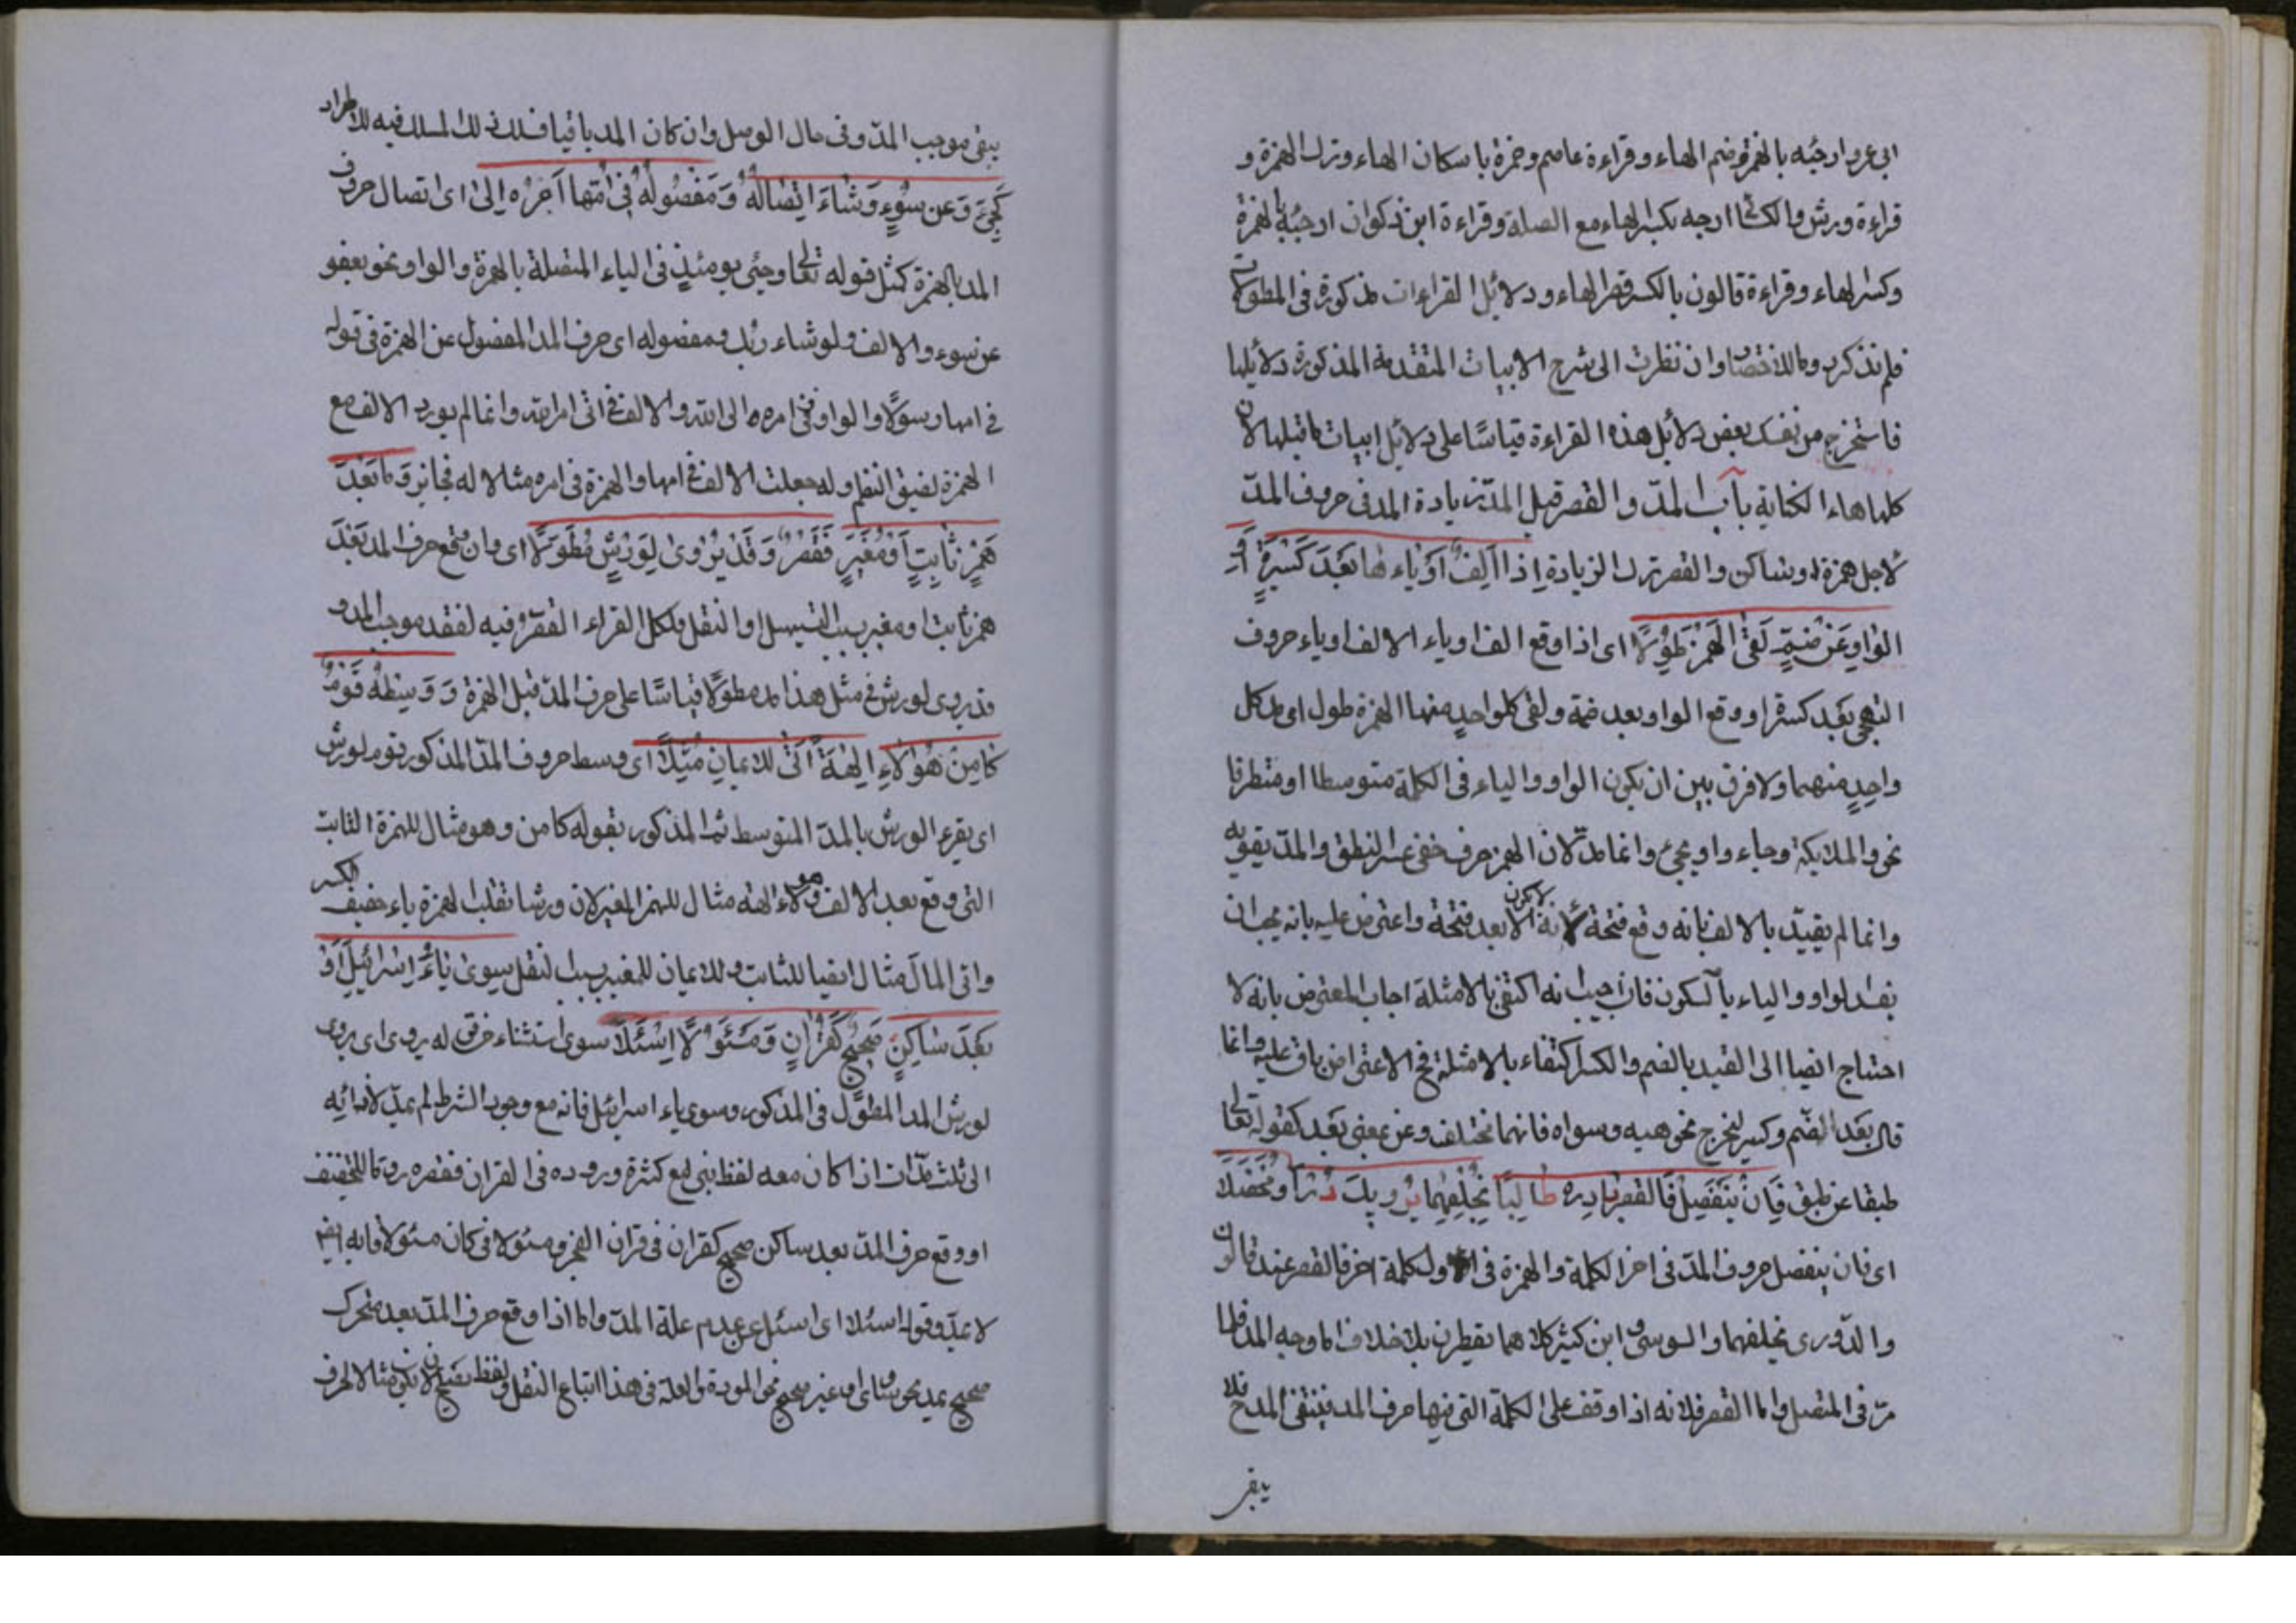 ابى عمرو ارجئه بالهمزة وضم الهاء وقراءة عاصم وحمزة باسكان الهاء وترك الهمزة و
قراءة ورش والكسائى ارجه بكسر الهاء مع الصلة وقراءة ابن ذكوان ارجئه بالهمزة
وكسر الهاء وقراءة قالون بالكسر وقصر الهاء ودلائل القراءات مذكورة فى المطولات
فلم نذكره وما للاختصار وان نظرت الى شرح الابيات المتقدمة المذكورة دلائلها
فاستخرج من نفسك بعض دلائل هذه القراءة قياسًا على دلائل ابيات ما قبلها لان
كلها هاء الكناية باب المدّ والقصر قيل المدّ زيادة المد فى حروف المدّ
لاجل همزة او ساكن والقصر ترك الزيادة اِذا اَلِفٌ اَوْ ياءها بَعْدَ كَسْرَةٍ اَوِ
الْوَاو عَنْ ضَمٍّ لَقِىَ الْهَمْزَ طُوِّلَا اى اذا وقع الف او ياء الالف او ياء حروف
التهجى بعد كسرة او وقع الواو بعد ضمة ولقى كلواحدٍ منها الهمزة طول اى مد كل
واحدٍ منهما ولا فرق بين ان يكون الواو والياء فى الكلمة متوسطا او متطرفا
نحو والملايكة وجاء واو يجئ وانما مدّ لان الهمز حرف خفى عسر النطق والمدّ يقويه
وانما لم يقيّد بالالف بانه وقع فتحة لانه لا يكون الا بعد فتحة واعترض عليه بانه يجب ان
يقيد الواو والياء بالسكون فان اجيب انه اكتفى بالامثلة اجاب المعترض بانه لا
احتياج ايضا الى القيد بالضم والكسر اكتفاء بالامثلة فح الاعتراض باق عليه وانما
قال بعد الضم وكسر ليخرج نحو هيه وسواه فانهما مختلف وعن بمعنى بعد كقوله تعالى
طبقا عن طبق فَاِنْ يَنْفَصِلْ فَالْقَصْرُ بَادِرْهُ طَالِبًا بِخُلْفِهِمَا يُرْوِيكَ دَرًّا وَمُخْضَلَا
اى فان ينفصل حروف المدّ فى اخر الكلمة والهمزة فى اول كلمة اخر فالقصر عند قالون
والدّورى بخلفهما والسوسى وابن كثير كلاهما يقصرن بلا خلاف اما وجه المد فلما
مرّ فى المتصل واما القصر فلانه اذا وقف على الكلمة التى فيها حرف المد فينتفى المد فلا
يبقى
يبقى موجب المدّ وفى حال الوصل وان كان المد باقيا فسلك ذلك المسلك فيه للاطراد
كَجِئَ وَعن سُوءٍ وَشَاءَ اتِّصَالُهُ وَمَفْصُولُهُ فى اُمِّهَا اَمْرُهُ اِلَى اى اتصال حروف
المد بالهمزة كمثل قوله تعالى وجئ يومئذٍ فى الياء المتصلة بالهمزة والواو نحو يعفو
عن سوء والالف ولو شاء ربك ومفصوله اى حرف المد المفصول عن الهمزة فى قوله
فى امها رسولًا والواو فى امره الى الله والالف فى اتى امر الله وانما لم يورد الالف مع
الهمزة لضيق النظم ولو جعلت الالف فى امها والهمزة فى امره مثالا له فجايز وَمَا بَعْدَ
هَمْزٍ ثَابِتٍ اَوْ مُغَيَّرٍ فَقَصْرٌ وَقَدْ يُرْوىٰ لِوَرْشٍ مُطَوَّلًا اى وان وقع حرف المد بعد
همز ثابت او مغير بسبب التسهيل او النقل فلكل القراء القصر فيه لفقد موجب المد و
قد يروى لورش فى مثل هذا مد مطولًا قياسًا على حرف المدّ قبل الهمزة وَ وَسَّطَهُ قَوْمٌ
كَآمَنَ هٰؤُلَاءِ اٰلِهَةً اٰتى للايمان مُثِّلَا اى وسط حروف المدّ المذكور قوم لورش
اى يقرء الورش بالمدّ المتوسط ثم المذكور بقوله كامن وهو مثال للهمزة الثابت
التى وقع بعد الالف وهولاء الهة مثال للهمز المغير لان ورشا تقلب الهمزة ياء خفيف الكسر
واتى المال مثال ايضا للثابت وللايمان للمغير بسبب النقل سِوىٰ يَاءِ اِسْرَائِيلَ اَوْ
بَعْدَ سَاكِنٍ صَحِيحٍ كَقُرْاٰنٍ وَمَسْئُوْلًا اِسْئَلَا سوى استثناء من له يروى اى يروى
لورش المد المطوّل فى المذكور وسوى ياء اسرائيل فانه مع وجود الشرط لم يمدّ لادائه
الى ثلث مدّات اذا كان معه لفظ بنى مع كثرة وروده فى القران فقصره روما للتخفيف
او وقع حرف المدّ بعد ساكن صحيح كقران فى قران الفجر ومسئولا فى كان مسئولا فانه ايضا
لا يمدّ وقوله اسئلا اى اسئل عن عدم علة المدّ واما اذا وقع حرف المدّ بعد متحرك